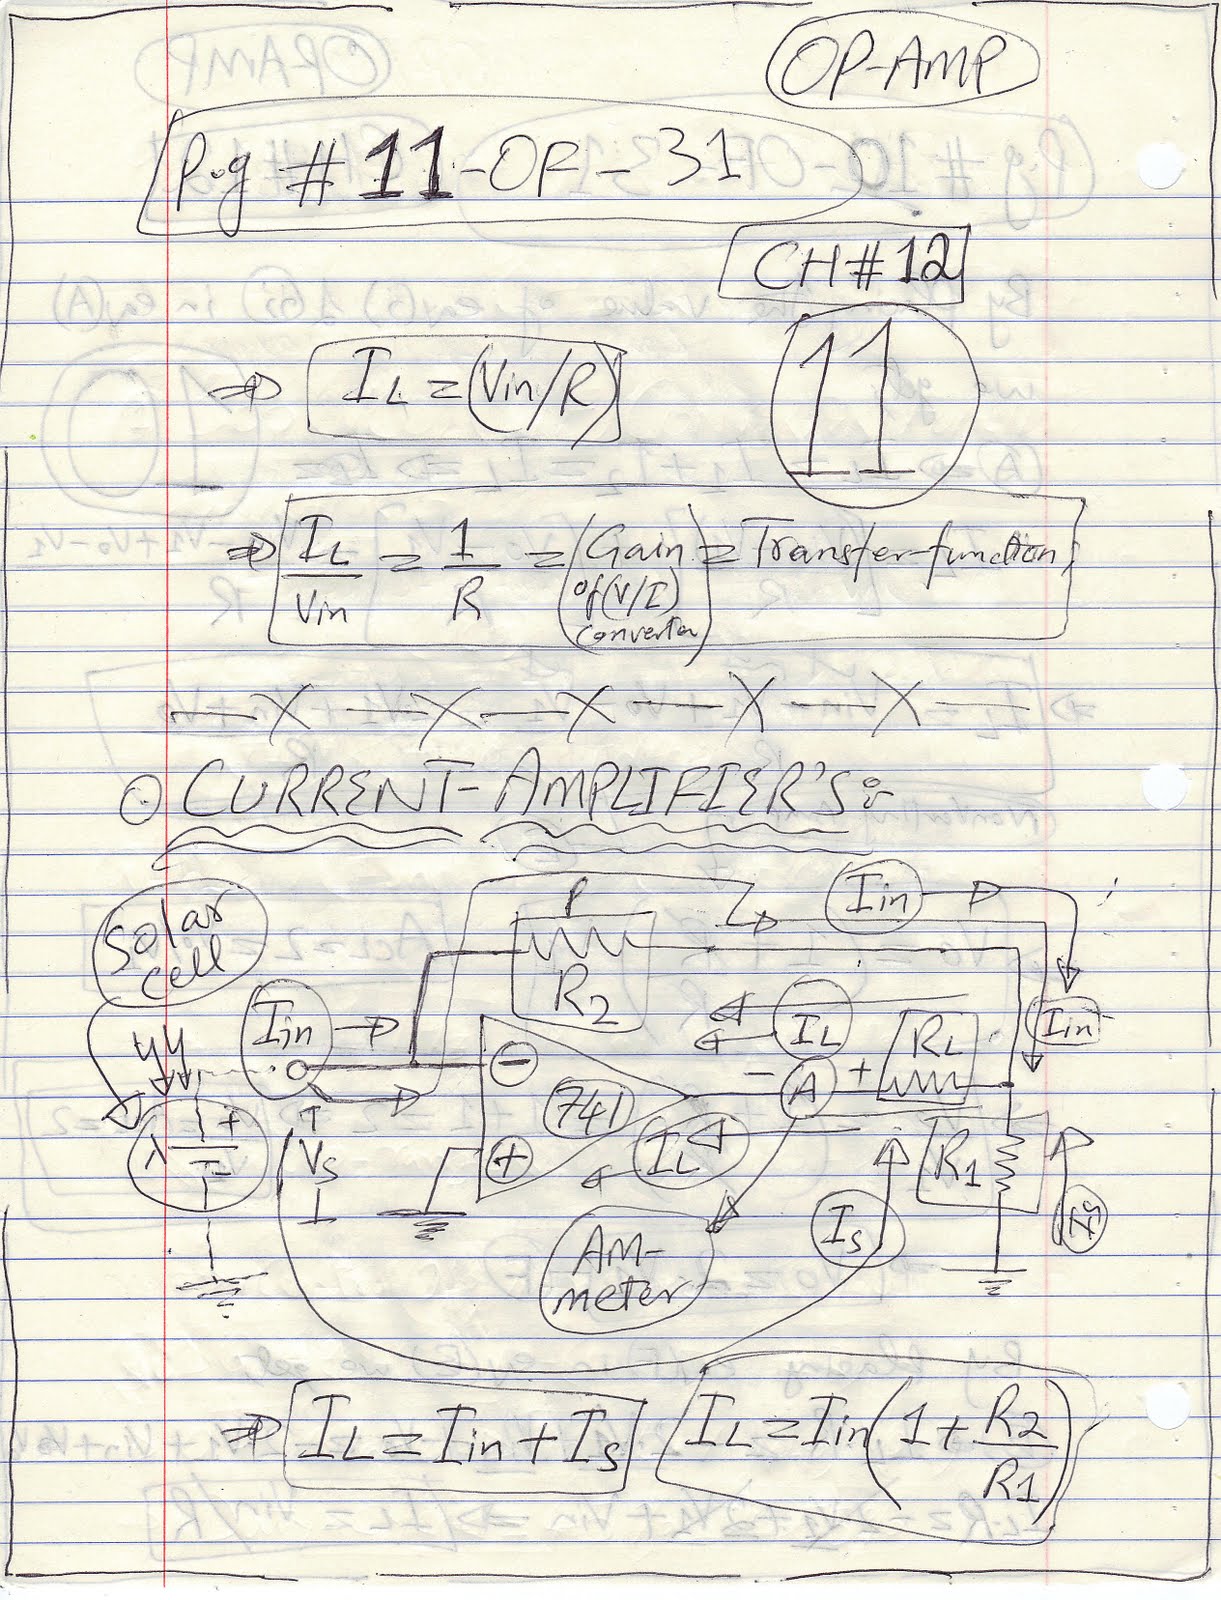 OP-AMP
P.g # 11-OF-31
CH#12
11
⇒ IL = (Vin/R)
⇒ IL/Vin = 1/R = (Gain of (V/I) converter) = Transfer-function
—X—X—X—X—X—
⊙ CURRENT-AMPLIFIER'S:
Solar cell
Iin
R2
Iin
Iin
IL
RL
− A +
−
741
+
IL
R1
Is
Is
λ
+
−
Vs
AM-
meter
⇒ IL = Iin + Is
IL = Iin(1 + R2/R1)